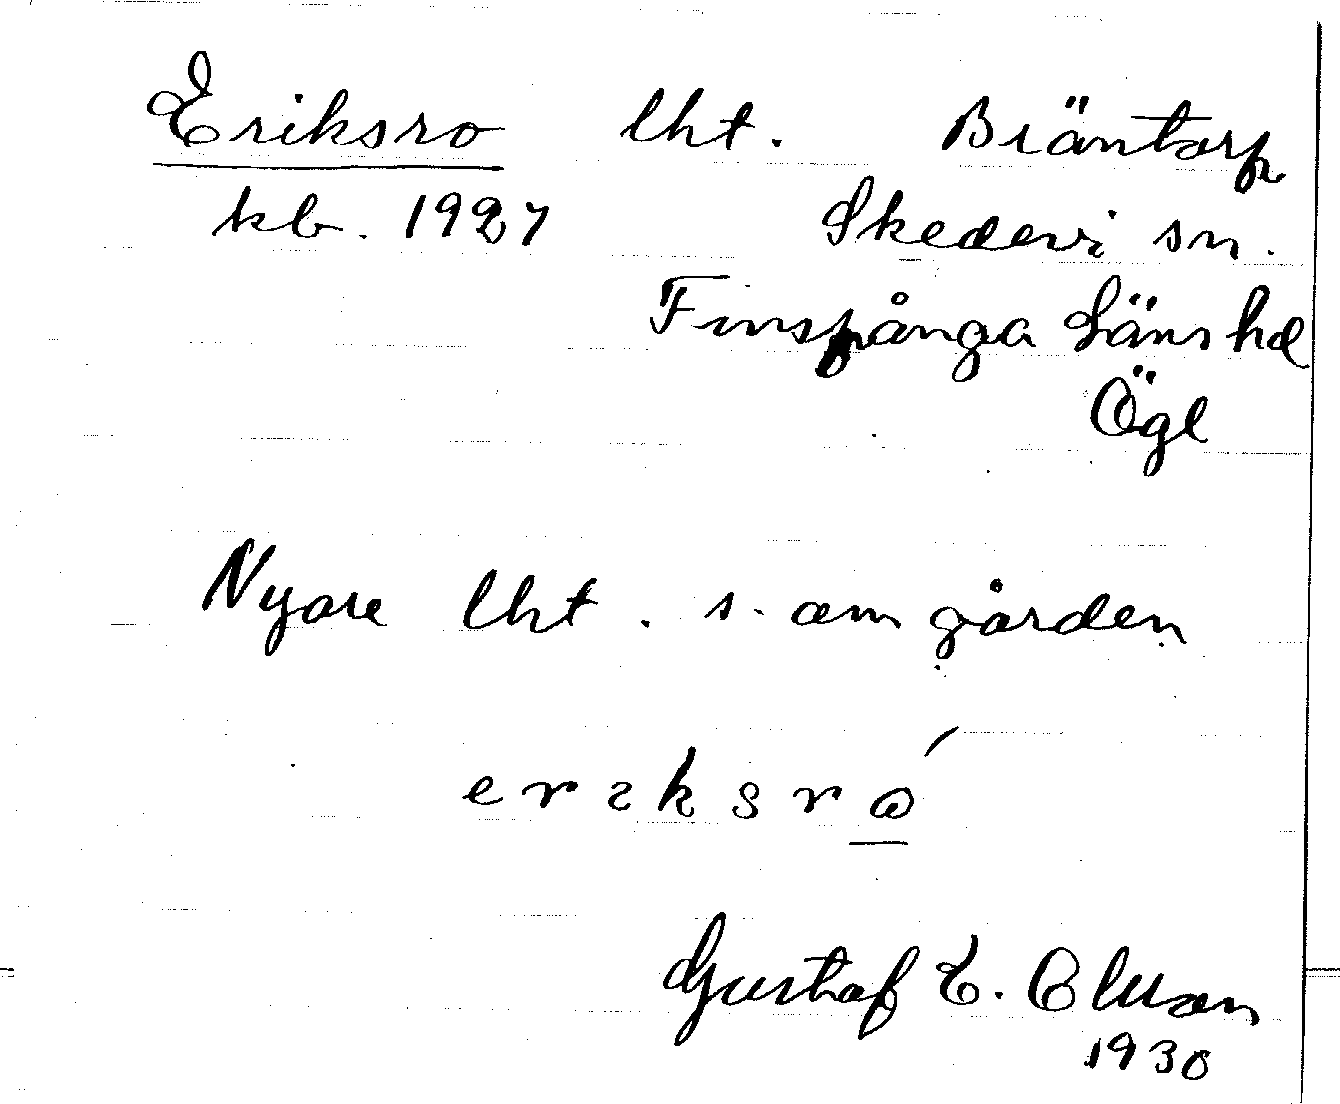 Eriksro lht. Bräntorp
kb. 1927 Skedevi sn.
Finspånga Läns hd
Ögl
Nyare lht. s. om gården
eriksró
Gustaf E.
1930